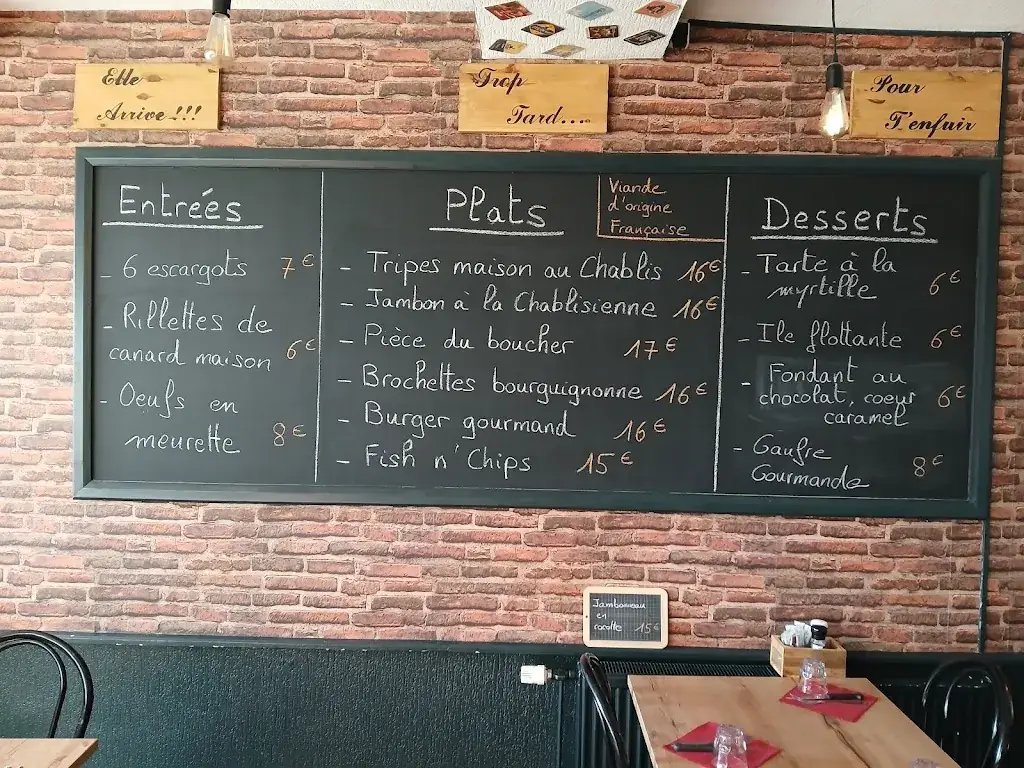 Elle
Arrive !!!
Trop
Tard...
Pour
T'enfuir
Entrées
- 6 escargots 7€
- Rillettes de
canard maison 6€
- Oeufs en
meurette 8€
Plats
Viande
d'origine
Française
- Tripes maison au Chablis 16€
- Jambon à la Chablisienne 16€
- Pièce du boucher 17€
- Brochettes bourguignonne 16€
- Burger gourmand 16€
- Fish n' Chips 15€
Desserts
- Tarte à la
myrtille 6€
- Ile flottante 6€
- Fondant au
chocolat, coeur
caramel 6€
- Gaufre
Gourmande 8€
Jambonneau
en
cocotte 15€